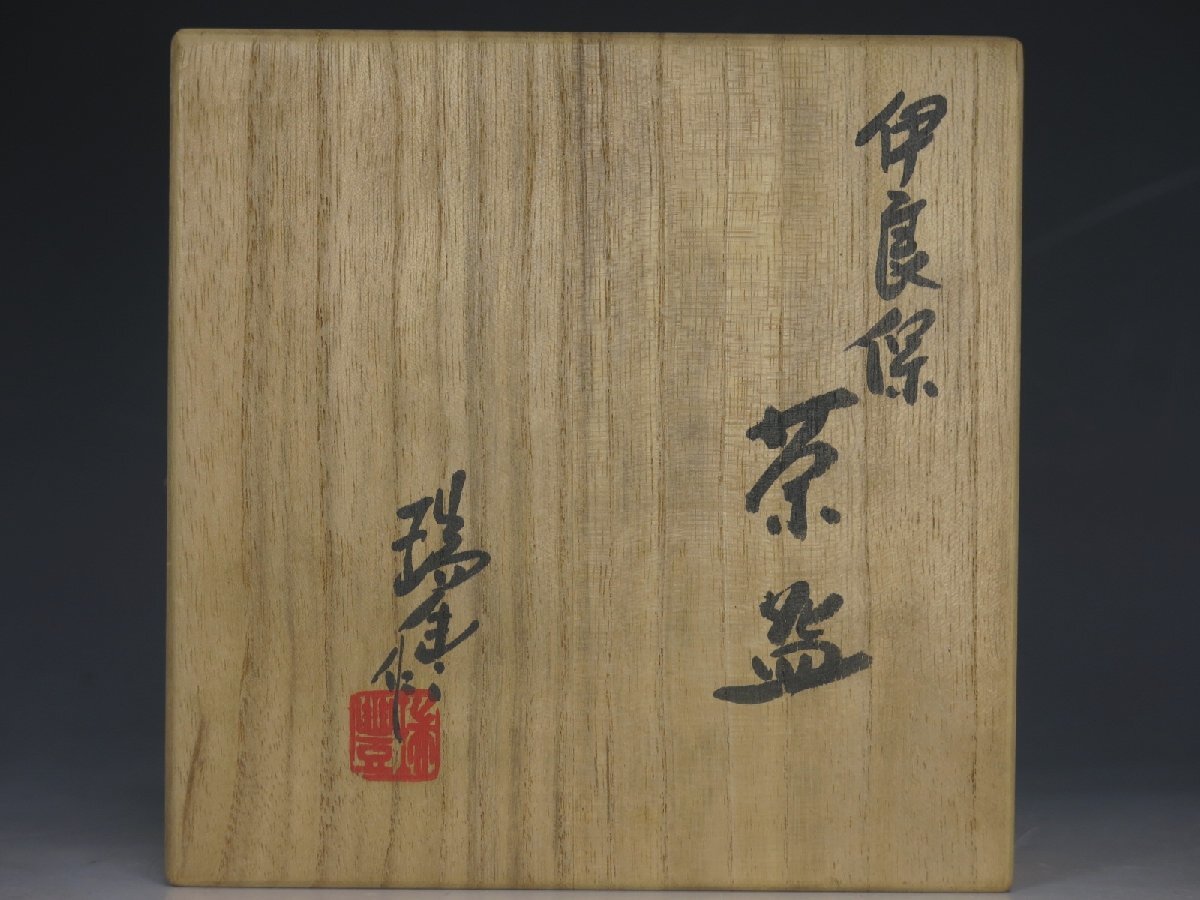 伊良保
茶盌
瑞
作